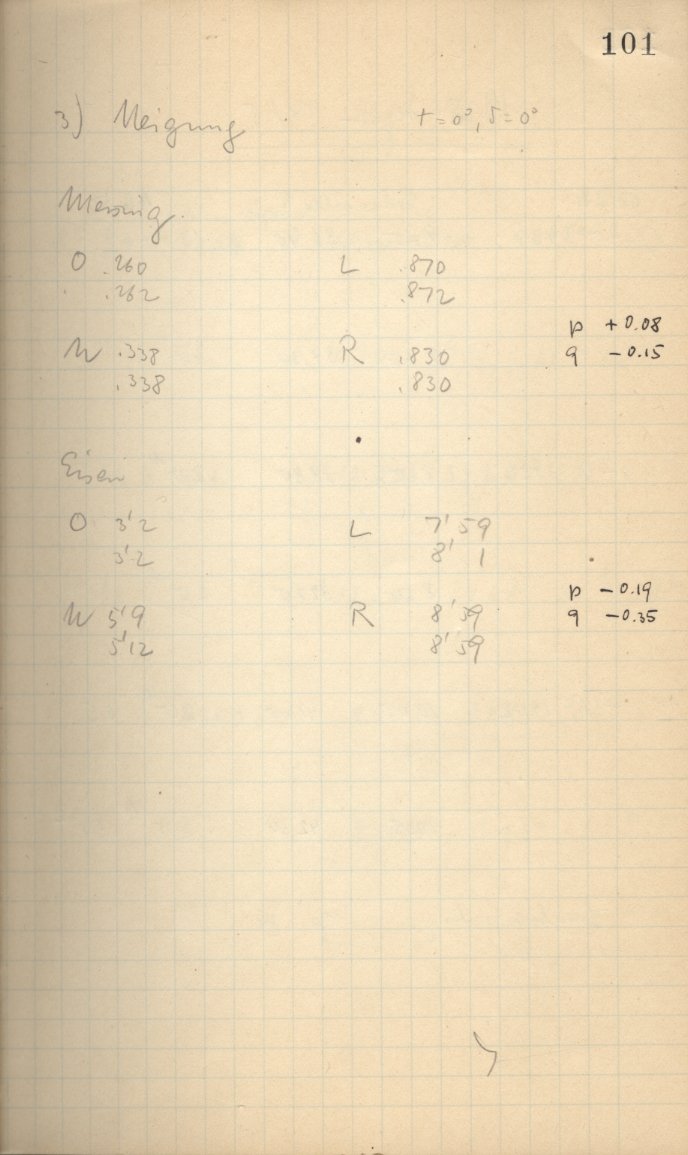 101
3) Neigung t=0°, δ=0°
Messing.
O .260 L .870
.262 .872
p +0.08
U .338 R .830 q -0.15
.338 .830
Eisen
O 3'2 L 7'59
3'2 8' 1
p -0.19
U 5'9 R 8'59 q -0.35
5'12 8'59